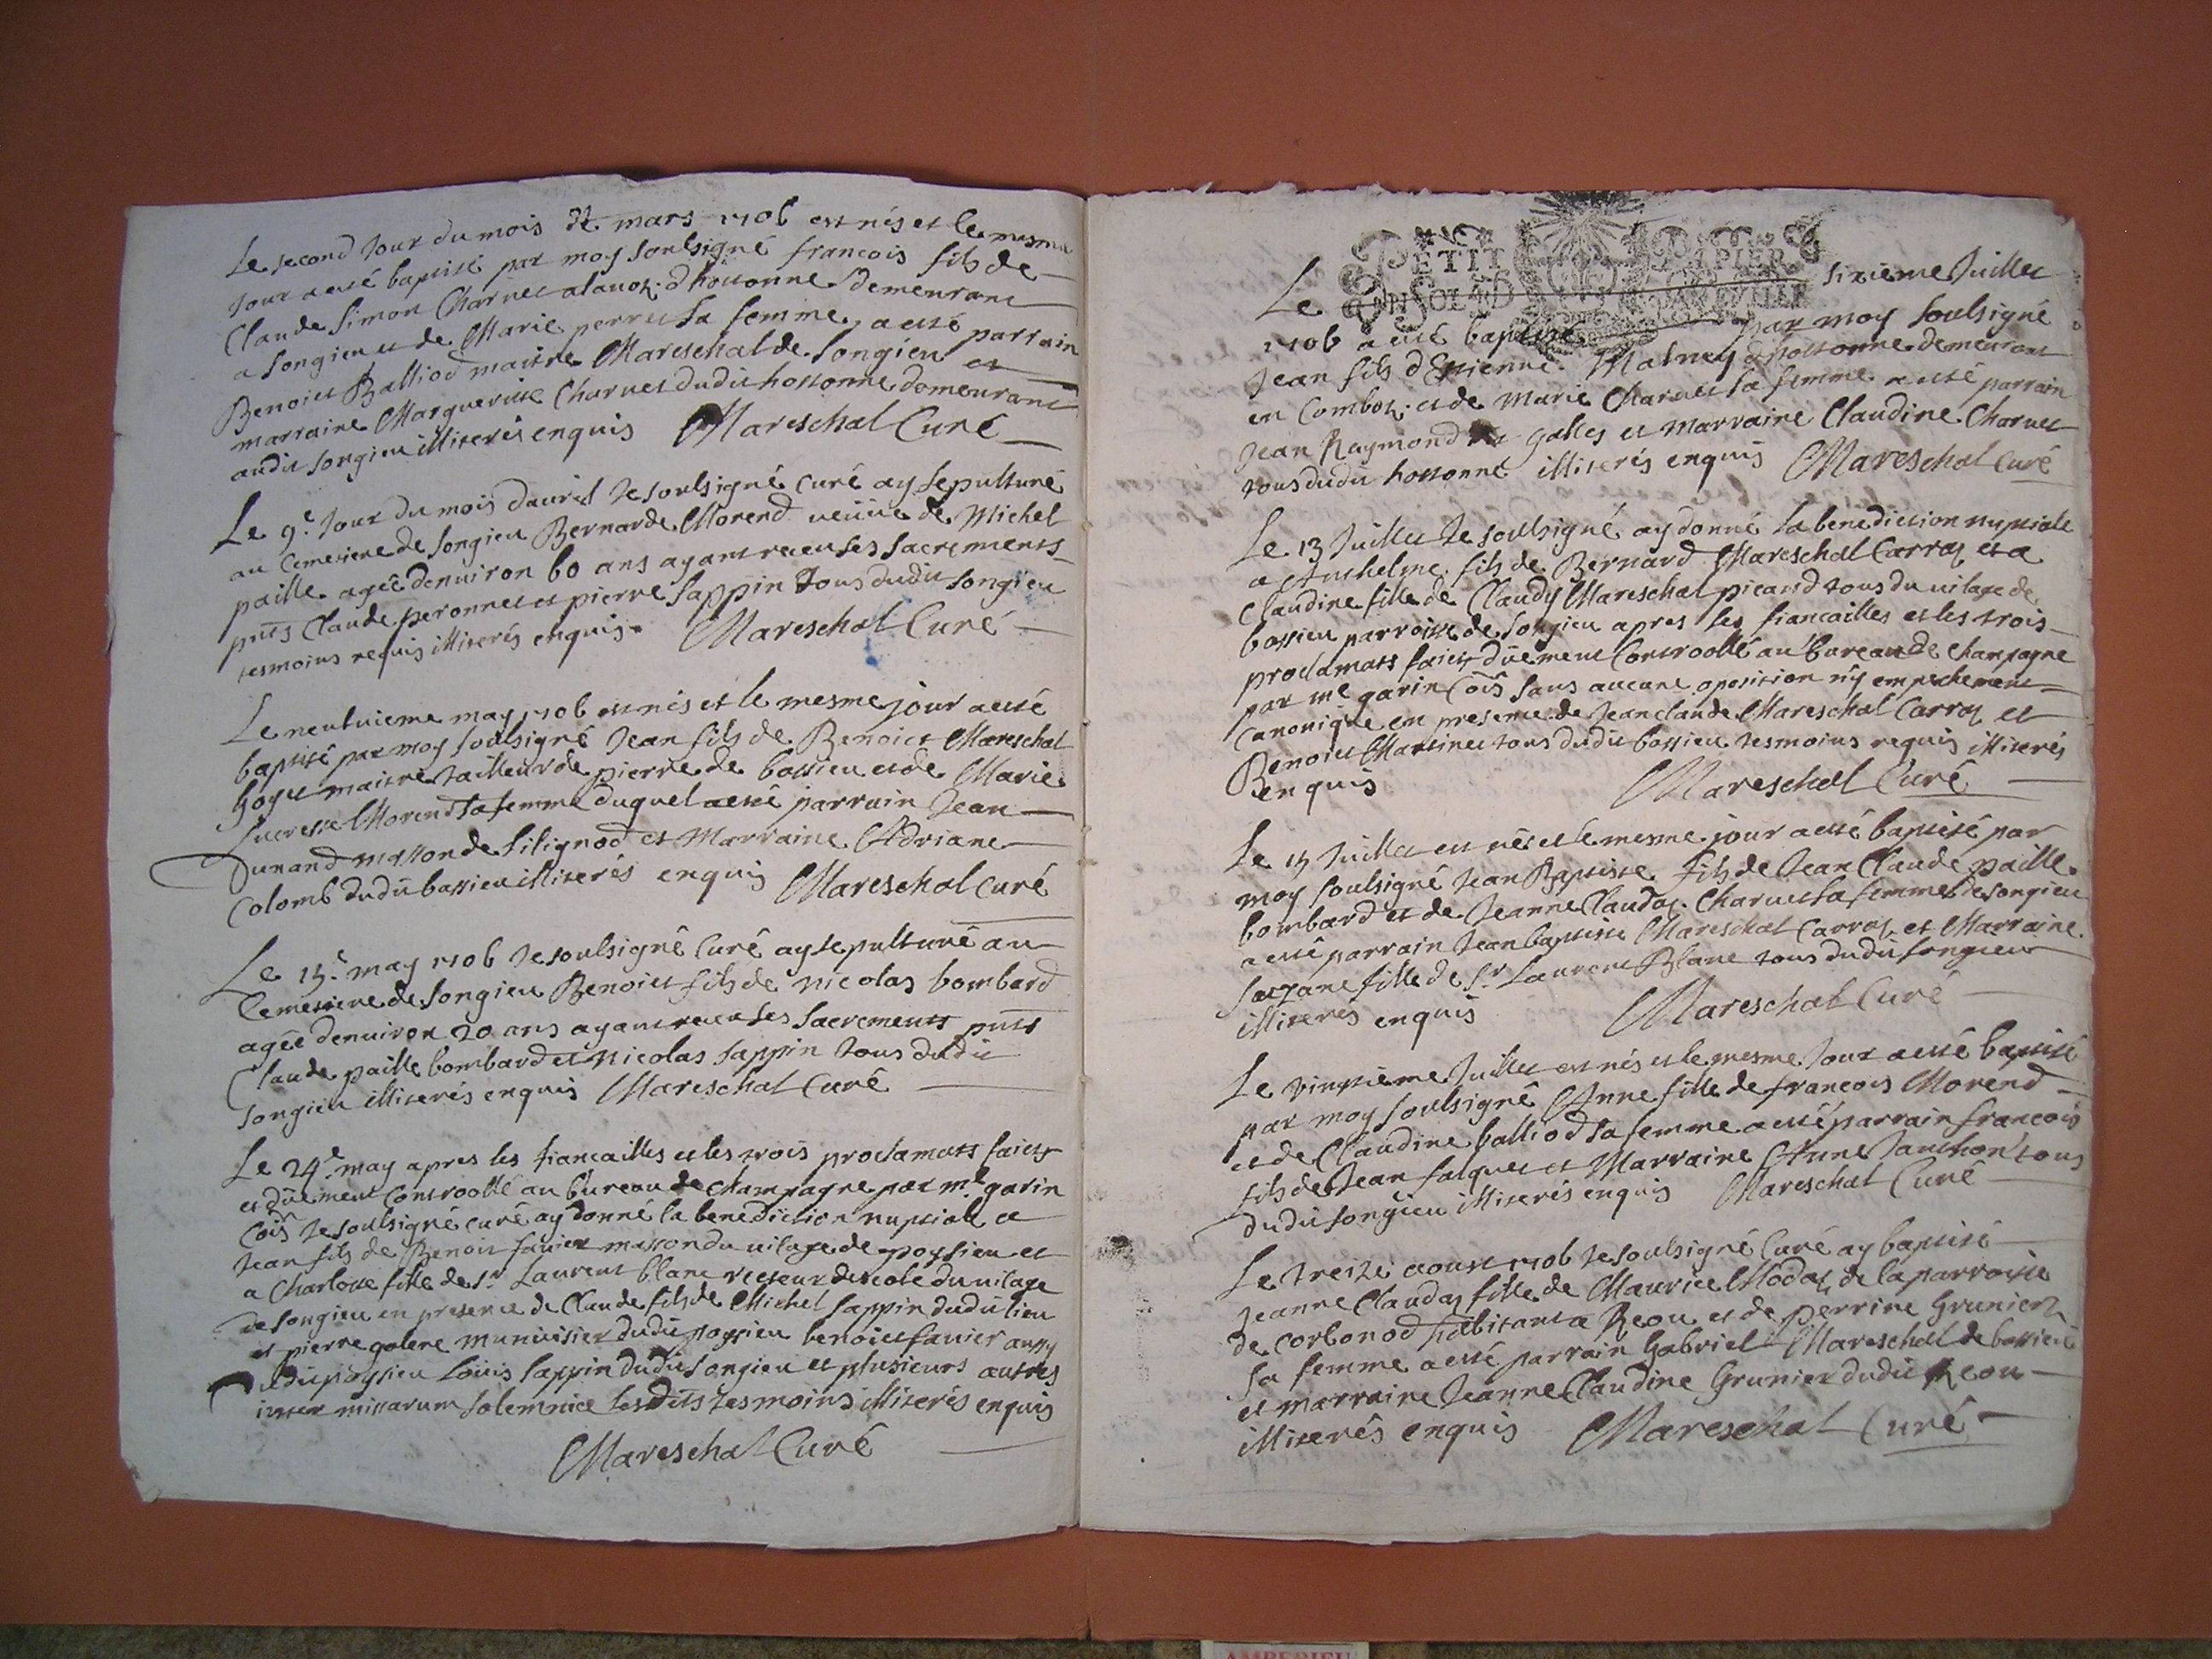 Le second Jour du mois de mars 1706 est nés et le mesme
Jour a esté baptisé par moy soulsigné francois fils de
Claude Simon Charuet alanoz d'hostonne demeurant
a songieu et de Marie perret sa femme, a esté parrain
Benoict Balliod maitre Mareschal de songieu et
marraine Margueritte Charuet dudit hostonne demeurant
audit songieu illiterés enquis Mareschal Curé
Le 9e Jour du mois dauril Je soulsigné Curé ay sepulturé
au Cemetiere de songieu Bernarde Morend ueüue de Michel
paille agée denuiron 60 ans ayant receu ses sacrements
pnts Claude peronnet et pierre sappin tous dudit songieu
tesmoins requis illiterés enquis Mareschal Curé
Le neufuieme may 1706 est nés et le mesme jour a esté
baptisé par moy soulsigné Jean fils de Benoict Mareschal
goyet maitre tailleur de pierre de bassieu et de Marie
Lucresse Morend sa femme duquel a esté parrain Jean
Dunand masson de silignod et Marraine Adriane
Colomb dudit bassieu illiterés enquis Mareschal Curé
Le 15e may 1706 Je soulsigné Curé ay sepulturé au
Cemetiere de songieu Benoict fils de nicolas bombard
agée denuiron 20 ans ayant receu ses sacrements pnts
Claude paille bombard et nicolas sappin tous dudit
songieu illiterés enquis Mareschal Curé
Le 24e may apres les fiancailles et les trois proclamats faicts
et düement Controollé au bureau de champagne par me garin
Cois Je soulsigné curé ay donné la benediction nuptiale a
Jean fils de Benoit fauier masson du uilage de poysieu et
a Charlotte fille de sr Laurent blanc recteur descole du uilage
de songieu en presence de Claude fils de Michel sappin dudit lieu
et pierre galene munuisier dudit poysieu benoict fauier aussy
dudit poysieu Loüis sappin dudit songieu et plusieurs autres
inter missarum solemnice lesdits tesmoins illiterés enquis
Mareschal Curé
PETIT PAPIER
Le sixieme Juillet
1706 a esté baptisé par moy soulsigné
Jean fils d'Estienne Malney d'hostonne demeurant
en Comboz et de Marie Charuet sa femme a esté parrain
Jean Raymond galley et marraine Claudine Charuet
tous dudit hostonne illiterés enquis Mareschal Curé
Le 13 Juillet Je soulsigné ay donné la benediction nuptiale
a Anthelme fils de Bernard Mareschal Carraz et a
Claudine fille de Claudy Mareschal picard tous du uilage de
bassieu parroisse de songieu apres les fiancailles et les trois
proclamats faicts düement Controollé au bureau de Champagne
par me garin Cois sans aucune oposition ny empechement
Canonique en presence de Jean claude Mareschal Carraz et
Benoict Martinet tous dudit bassieu tesmoins requis illiterés
enquis Mareschal Curé
Le 15 Juillet est nés et le mesme jour a esté baptisé par
moy soulsigné Jean Baptiste fils de Jean Claude paille
bombard et de Jeanne Claudaz Charuet sa femme de songieu
a esté parrain Jean baptiste Mareschal Carraz et Marraine
suzane fille de sr Laurent Blanc tous dudit songieu
illiterés enquis Mareschal Curé
Le vingtieme Juillet est nés et le mesme Jour a esté baptisé
par moy soulsigné Anne fille de francois Morend
et de Claudine balliod sa femme a esté parrain francois
fils de Jean falquet et Marraine Anne Janthon tous
dudit songieu illiterés enquis Mareschal Curé
Le treize aoust 1706 Je soulsigné Curé ay baptisé
Jeanne Claudaz fille de Maurice Modaz de la parroisse
de Corbonod habitant a Reou et de perrine Grunier
sa femme a esté parrain Gabriel Mareschal de bassieu
et marraine Jeanne Claudine Grunier dudit Reou
illiterés enquis Mareschal Curé